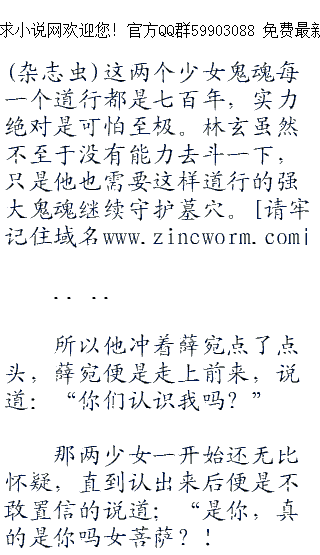 求小说网欢迎您! 官方QQ群59903088 免费最新
(杂志虫)这两个少女鬼魂每
一个道行都是七百年，实力
绝对是可怕至极。林玄虽然
不至于没有能力去斗一下，
只是他也需要这样道行的强
大鬼魂继续守护墓穴。[请牢
记住域名www.zincworm.com]
.. ..
所以他冲着薛宛点了点
头，薛宛便是走上前来，说
道：“你们认识我吗？”
那两少女一开始还无比
怀疑，直到认出来后便是不
敢置信的说道：“是你，真
的是你吗女菩萨？！